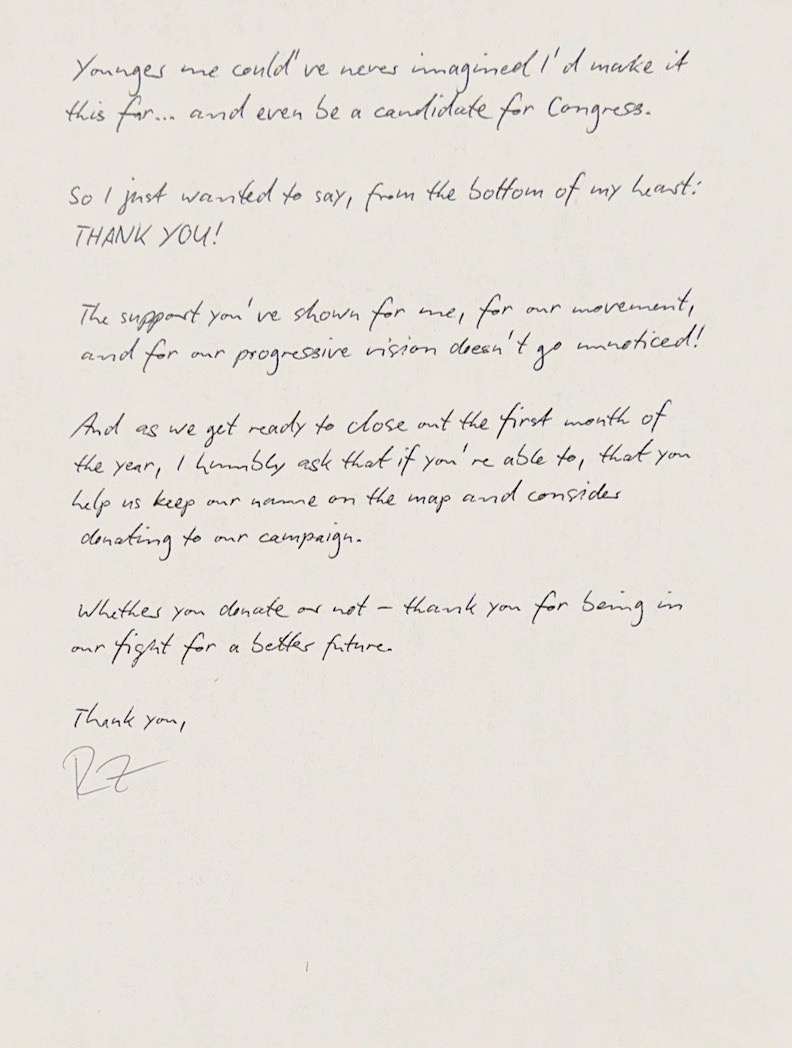 Younger me could've never imagined I'd make it
this far... and even be a candidate for Congress.
So I just wanted to say, from the bottom of my heart:
THANK YOU!
The support you've shown for me, for our movement,
and for our progressive vision doesn't go unnoticed!
And as we get ready to close out the first month of
the year, I humbly ask that if you're able to, that you
help us keep our name on the map and consider
donating to our campaign.
Whether you donate or not – thank you for being in
our fight for a better future.
Thank you,
RZ